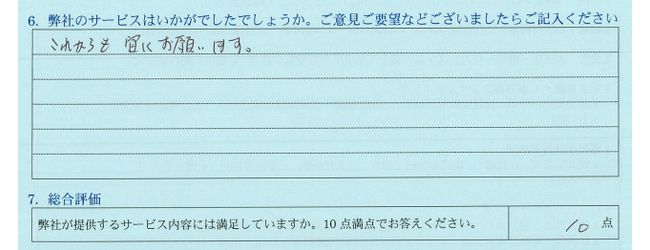 6. 弊社のサービスはいかがでしたでしょうか。ご意見ご要望などございましたらご記入ください
これからも 宜しくお願いします。
7. 総合評価
弊社が提供するサービス内容には満足していますか。10 点満点でお答えください。 10 点